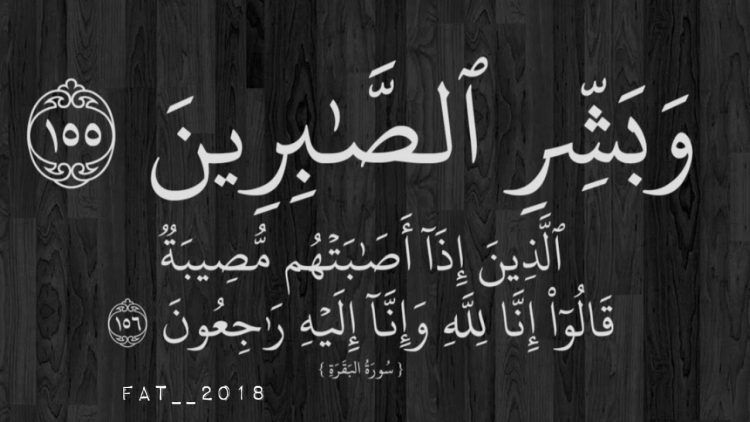 وَبَشِّرِ ٱلصَّٰبِرِينَ ١٥٥
ٱلَّذِينَ إِذَآ أَصَٰبَتۡهُم مُّصِيبَةٞ
قَالُوٓاْ إِنَّا لِلَّهِ وَإِنَّآ إِلَيۡهِ رَٰجِعُونَ ١٥٦
{ سُورَةُ البَقَرَةِ }
FAT__2018